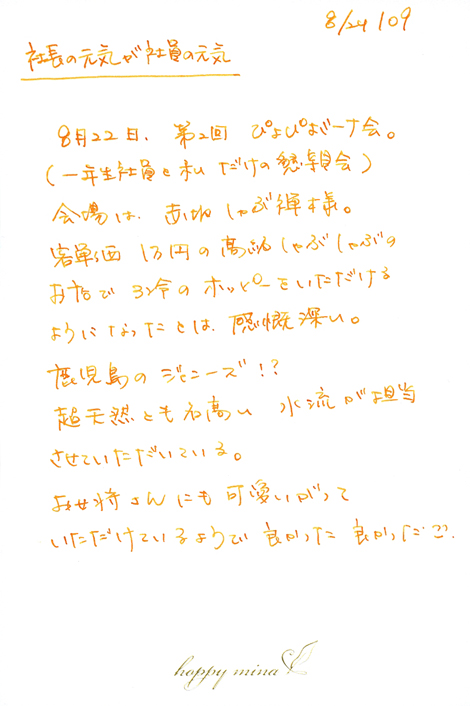 8/24/09
社長の元気が社員の元気
8月22日、第2回 ぴよぴよバーナ会。
(一年生社員と私だけの懇親会)
会場は、赤坂しゃぶ禅様。
客単価 1万円の高級しゃぶしゃぶの
お店で 3冷のホッピーをいただける
ようになったとは、感慨深い。
鹿児島のジャニーズ!?
超天然とも名高い 水流が担当
させていただいている。
女将さんにも可愛いがって
いただけているようで良かった 良かった
happy mina